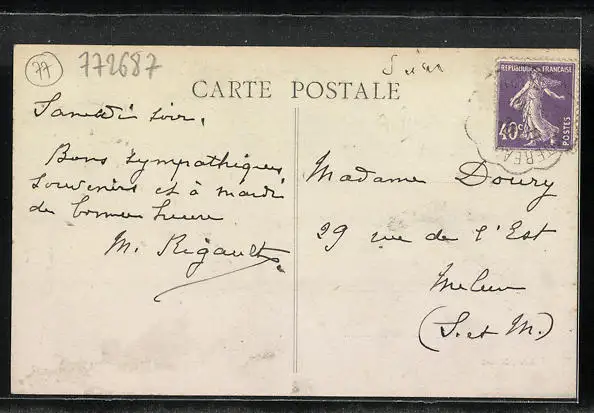 77
772687
CARTE POSTALE
REPUBLIQUE FRANÇAISE
40c
POSTES
Samedi soir,
Bons sympathiques
souvenirs et à mardi
de bonne heure
M. Rigault
Madame Doury
29 rue de l'Est
Melun
(S. et M.)